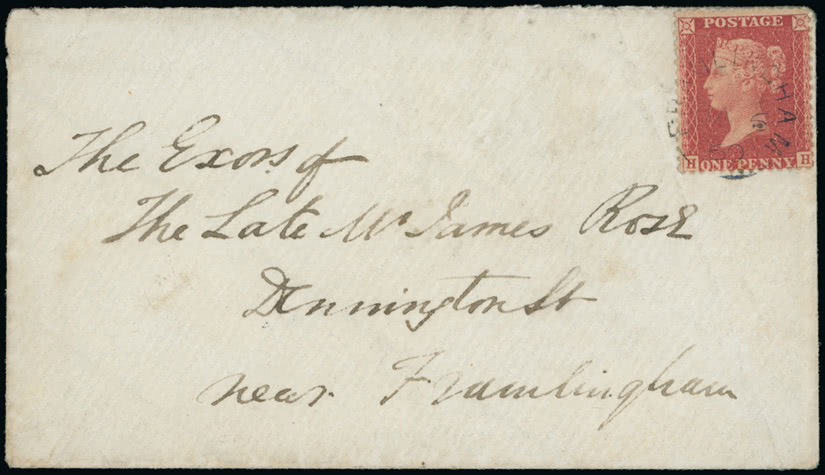 POSTAGE
ONE PENNY
H H
The Exors of
The Late Mr James Rose
Dennington St
near Framlingham